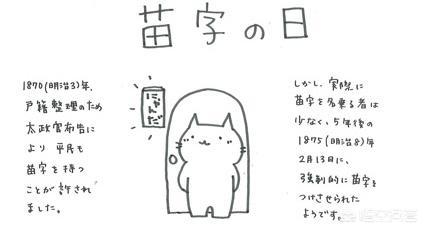 苗字の日
1870(明治3)年、
戸籍整理のため
太政官布告に
より 平民も
苗字を持つ
ことが許され
ました。
にゃんだ
しかし、実際に
苗字を名乗る者は
少なく、5年後の
1875(明治8)年
2月13日に、
強制的に苗字を
つけさせられた
ようです。
悟空问答